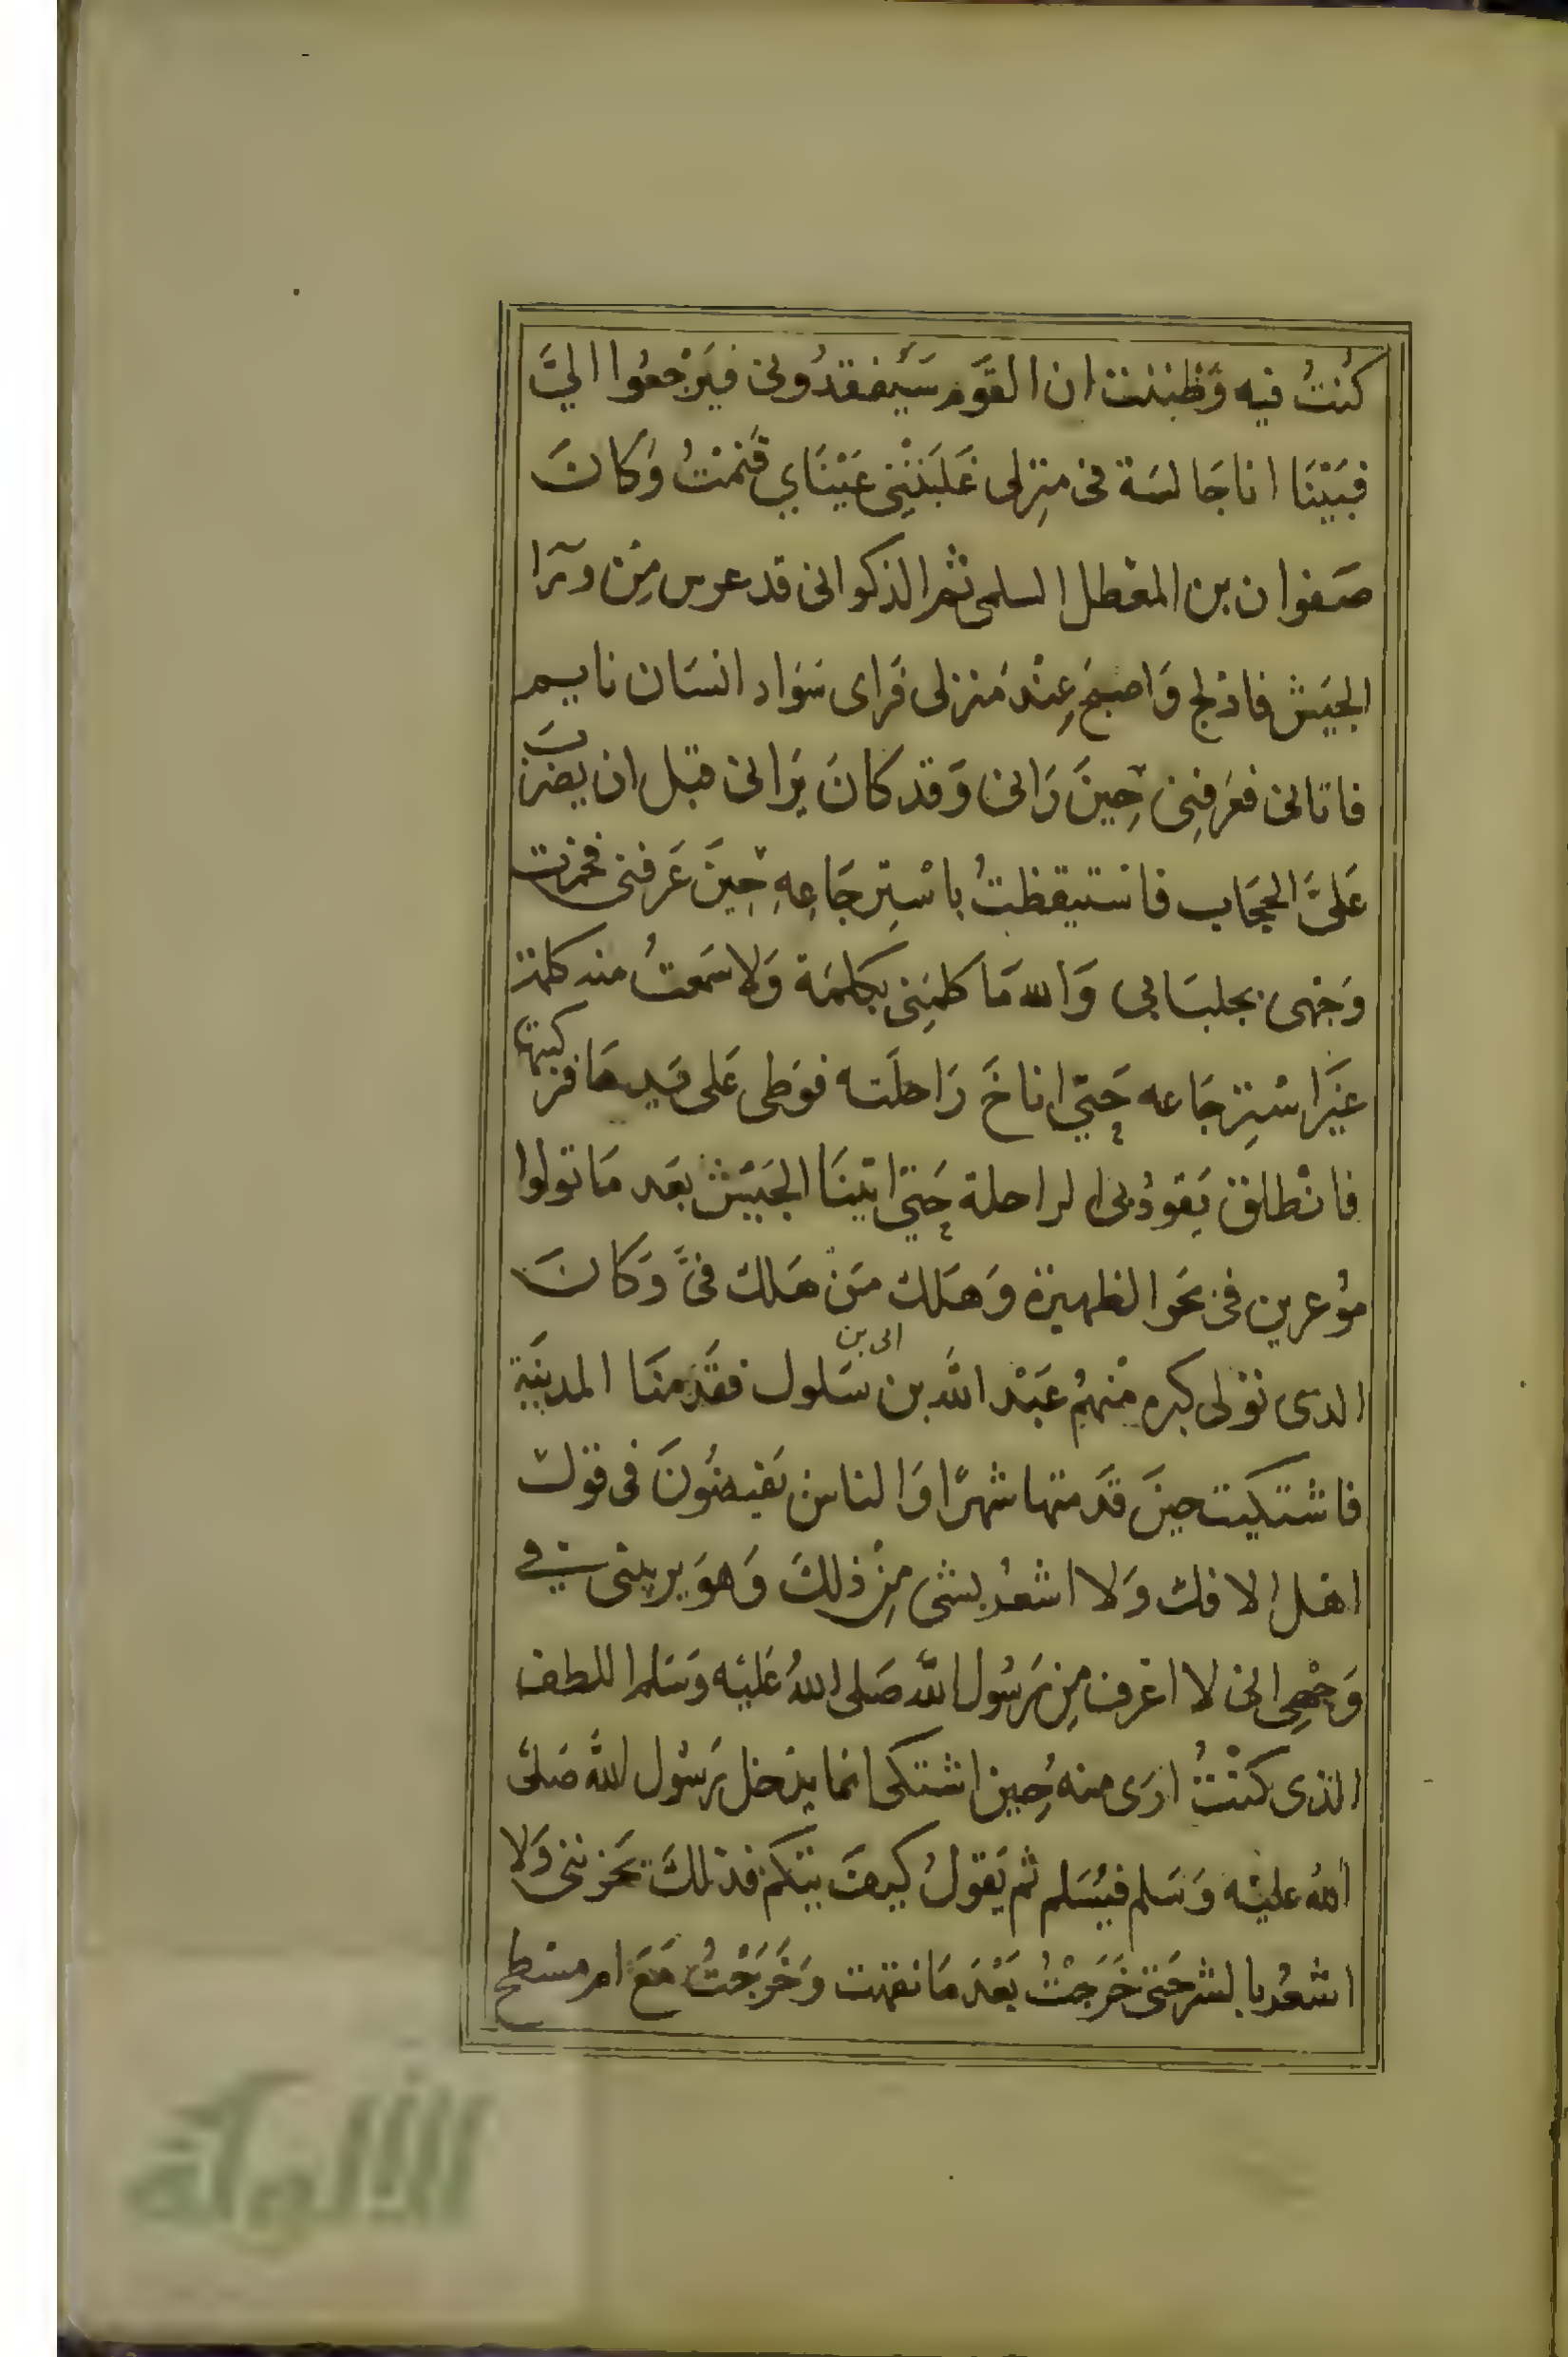 كُنتُ فيه وَظننت ان القَوم سَيَفقدُونى فيَرْجعُوا اليَّ
فبَيْنَا انا جَالسَة فى منزِلى غَلبَتْنِى عَيْنَاي فَنمْتُ وَكانَ
صَفوان بن المعْطل السلمى ثم الذكوانى قد عرس مِن ورَا
الجيَش فادلج وَاصبحَ عِنْدَ مَنزلى فَراى سَوَاد انسَان نايم
فاتانى فعَرفنِى حِينَ رَانى وَقد كانَ يرَانى قبل ان يضربَ
عَلىَّ الحجَاب فاستيقظتُ باسْتِرجَاعِهِ حِينَ عَرفنى فخمرت
وَجْهى بجلبَابى وَالله مَا كلمَنِى بكلمَة وَلا سَمعتُ منه كلمة
غيَر اسْتِرجَاعه حَتى اناخَ رَاحلَته فوَطى عَلى يَديهَا فركبتها
فانْطلق يَقودُ بى الراحلة حَتى اتينَا الجَيْش بعَد مَا نزلوا
موُغرين فى نحَو الظهيرة وَهَلك مَن هَلك فىَّ وَكانَ
الذى تولى كبره مْنهمُ عَبْد الله بن ابى بن سَلول فقَدمنَا المدينَة
فاشتكيت حينَ قَدمتها شهرًا وَالناس يَفيضُونَ فى قول
اهْل الافك وَلا اشعُر بشى مِنْ ذلكَ وَهوَ يريبنى فى
وَجْعِى انى لا اعْرف مِن رَسُول الله صَلى اللهُ عَليْه وَسَلم اللطف
الذى كنْتُ ارَى منه حِين اشتكى انما يدْخل رَسُول اللهَ صَلىَ
اللهُ عليْه وَسَلم فيُسَلم ثم يَقولُ كيفَ تيكم فذلكَ يحَزننى وَلا
اشعُر بالشر حَتى خَرَجْتُ بَعْدَ مَا نقهت وَخَرَجْتُ مَعَ ام مسْطح
الألوكة